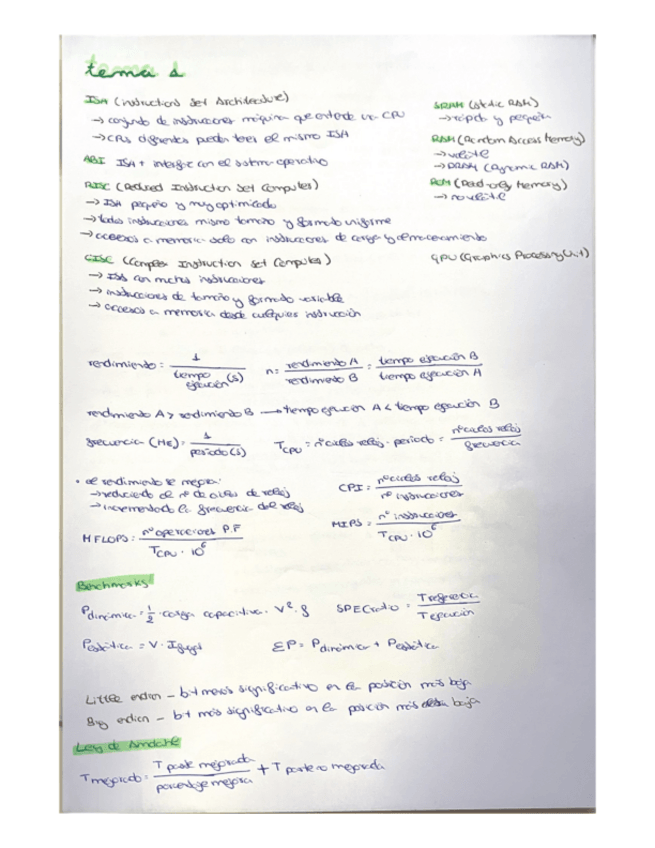 tema 1
ISA (Instructions Set Architecture)
→ conjunto de instrucciones máquina que entiende una CPU
→ CPUs diferentes pueden tener el mismo ISA
ABI ISA + interfaz con el sistema operativo
RISC (Reduced Instruction Set Computer)
→ ISA pequeño y muy optimizado
→ todas instrucciones mismo tamaño y formato uniforme
→ accesos a memoria solo con instrucciones de carga y almacenamiento
CISC (Complex Instruction Set Computer)
→ ISA con muchas instrucciones
→ instrucciones de tamaño y formato variable
→ accesos a memoria desde cualquier instrucción
SRAM (Static RAM)
→ rápida y pequeña
RAM (Random Access Memory)
→ volátil
→ DRAM (Dynamic RAM)
ROM (Read-only Memory)
→ no volátil
GPU (Graphics Processing Unit)
rendimiento = 1 / tiempo ejecución (s)
n = rendimiento A / rendimiento B = tiempo ejecución B / tiempo ejecución A
rendimiento A > rendimiento B → tiempo ejecución A < tiempo ejecución B
frecuencia (Hz) = 1 / periodo (s)
T CPU = nº ciclos reloj · periodo = nº ciclos reloj / frecuencia
• el rendimiento se mejora:
→ reduciendo el nº de ciclos de reloj
→ incrementando la frecuencia del reloj
CPI = nº ciclos reloj / nº instrucciones
MIPS = nº instrucciones / T CPU · 10⁶
MFLOPS = nº operaciones P.F / T CPU · 10⁶
Benchmarks
Pdinámica = 1/2 · carga capacitiva · V² · f
SPECratio = Treferencia / Tejecución
Pestática = V · Ifuga
ΣP = Pdinámica + Pestática
Little endian – bit menos significativo en la posición más baja
Big endian – bit más significativo en la posición más baja
Ley de Amdahl
Tmejorado = T parte mejorada / porcentaje mejora + T parte no mejorada